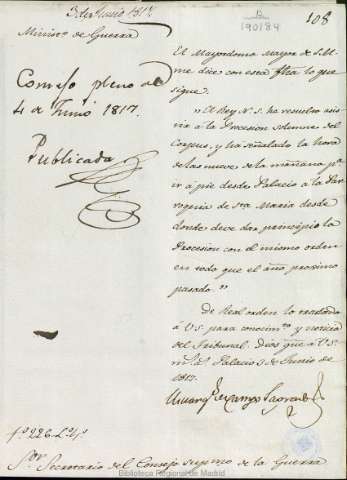 3 de Junio 1817
108
190184
Minist.º de Guerra
Consejo pleno de
4 de Junio 1817.
Publicada
El Mayordomo Mayor de S.M.
me dice con esta fha lo que
sigue.
"El Rey N.S. ha resuelto asis-
tir a la Procesion solemne del
Corpus, y ha señalado la hora
de las nueve de la mañana pa
ir a pie desde Palacio a la Par-
roquia de Sta Maria desde
donde deve dar principio la
Procesion con el mismo orden
en todo que el año proximo
pasado."
De Real orden lo traslado
á V.S. para conocim.to y noticia
del Tribunal. Dios gue á V.S.
m.s a.s Palacio 3 de Junio de
1817.
Campo Sagrado
Sor Secretario del Consejo supremo de la Guerra
Biblioteca Regional de Madrid